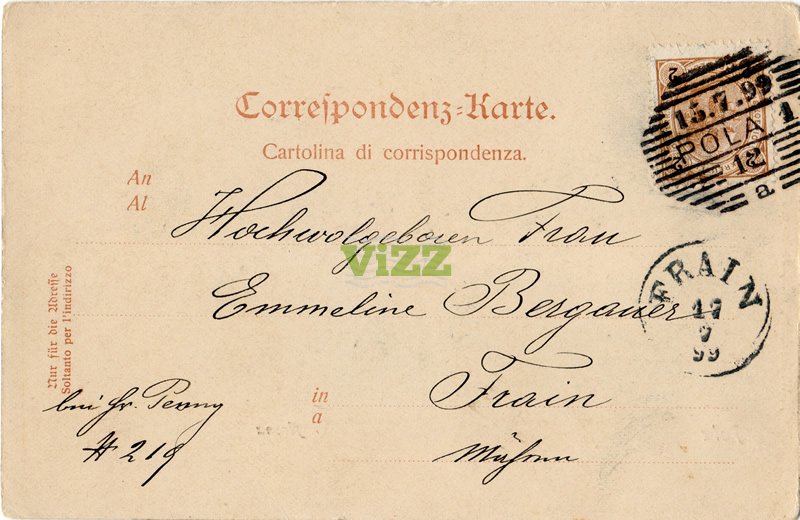 Correspondenz-Karte.
Cartolina di corrispondenza.
An
Al
2
15.7.99
POLA
12
a
1
Hochwolgeboren Frau
ViZZ
Emmeline Bergauer
FRAIN
17
7
99
in
a
Frain
Mähren
Nur für die Adresse
Soltanto per l'indirizzo
bei Hr.
# 219